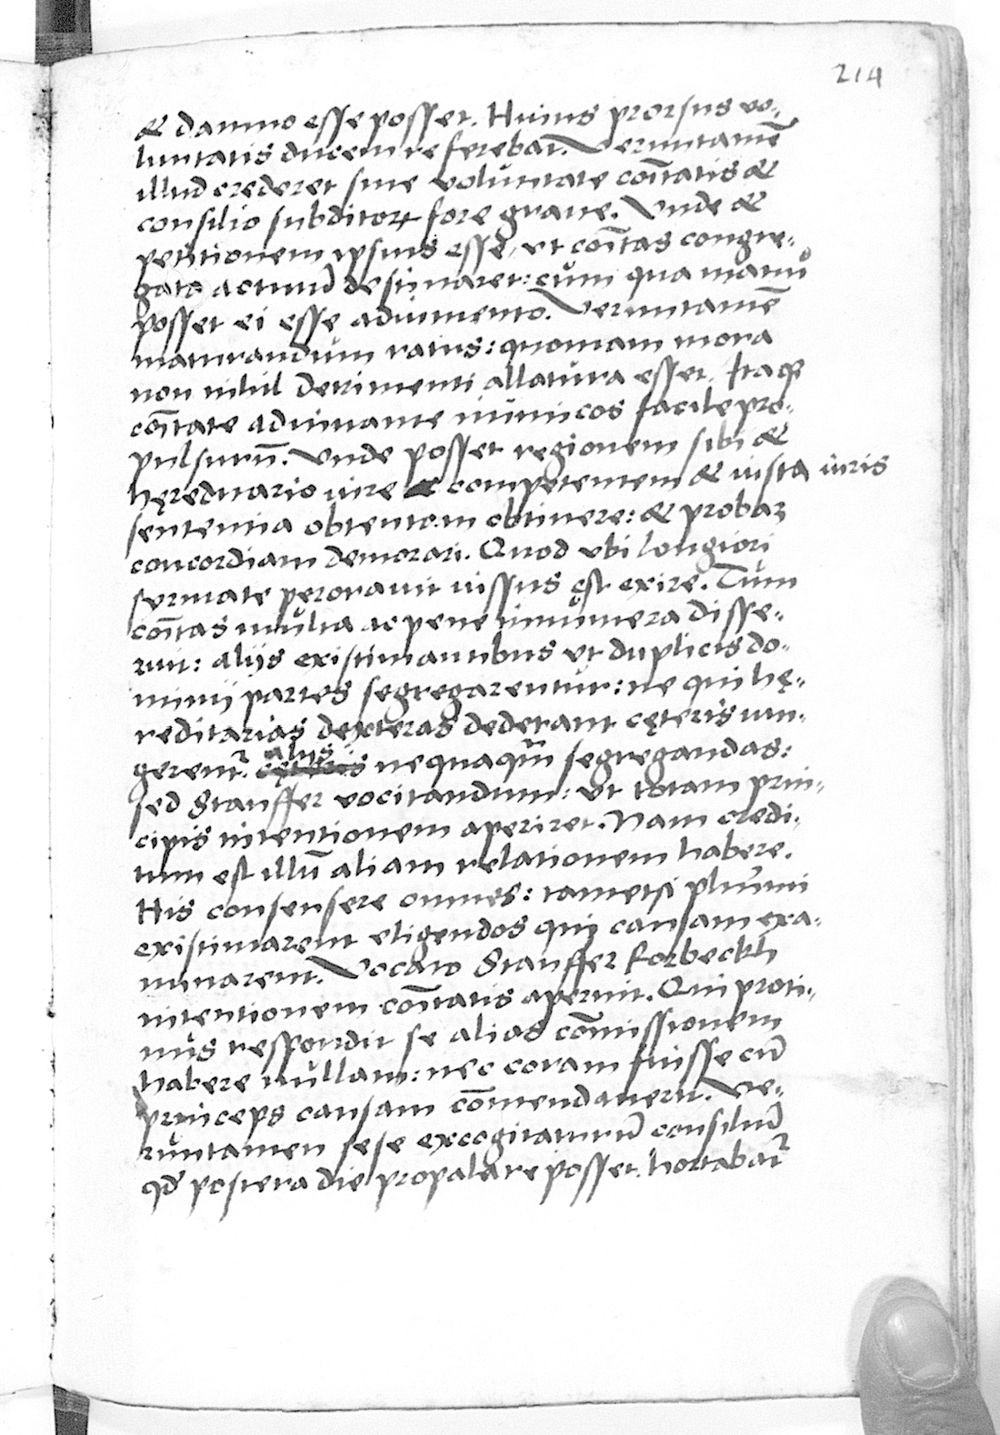 214
& damno esse posset. Huius prorsus vo-
luntatis ducem referebat. Veruntamē
illud crederet sine voluntate com̄tatis &
consilio subditorꝝ fore graue. Vnde &
petitionem ipsius esse, vt com̄tas congre-
gata actutū destinaret: cum qua manu
posset ei esse adiumento. Veruntamē
maturandum ratus: quoniam mora
non nihil detrimenti allatura esset. Itaqꝫ
com̄tate adiuuante inimicos facile pro-
pulsurū. Vnde posset regionem sibi &
hęreditario iure & competentem & iusta iuris
sententia obtentam obtinere: & probaꝫ
concordiam demorari. Quod vbi longiori
sermone perorauit iussus est exire. Tum
com̄tas multa ac pene innumera disse-
ruit: alijs existimantibus vt duplicis do-
minij partes segregarentur: ne qui hę-
reditarias dexteras dederant cęteris iun-
gerent᷑. cęteris alijs nequaqm̄ segregandas:
sed Stauffer vocitandum: vt totam prin-
cipis intentionem aperiret. Nam credi-
tum est illū aliam relationem habere.
His consensere omnes: tametsi plurimi
existimarent eligendos qui causam exa-
minarent. Vocato Stauffer Forbeckh
intentionem com̄tatis aperuit. Qui proti-
nus respondit se alias com̄issionem
habere nullam: nec coram fuisse cū
princeps causam com̄endauerit. Ve-
runtamen sese excogitaturū consiliū
qd̄ postera die propalare posset. hortabat᷑